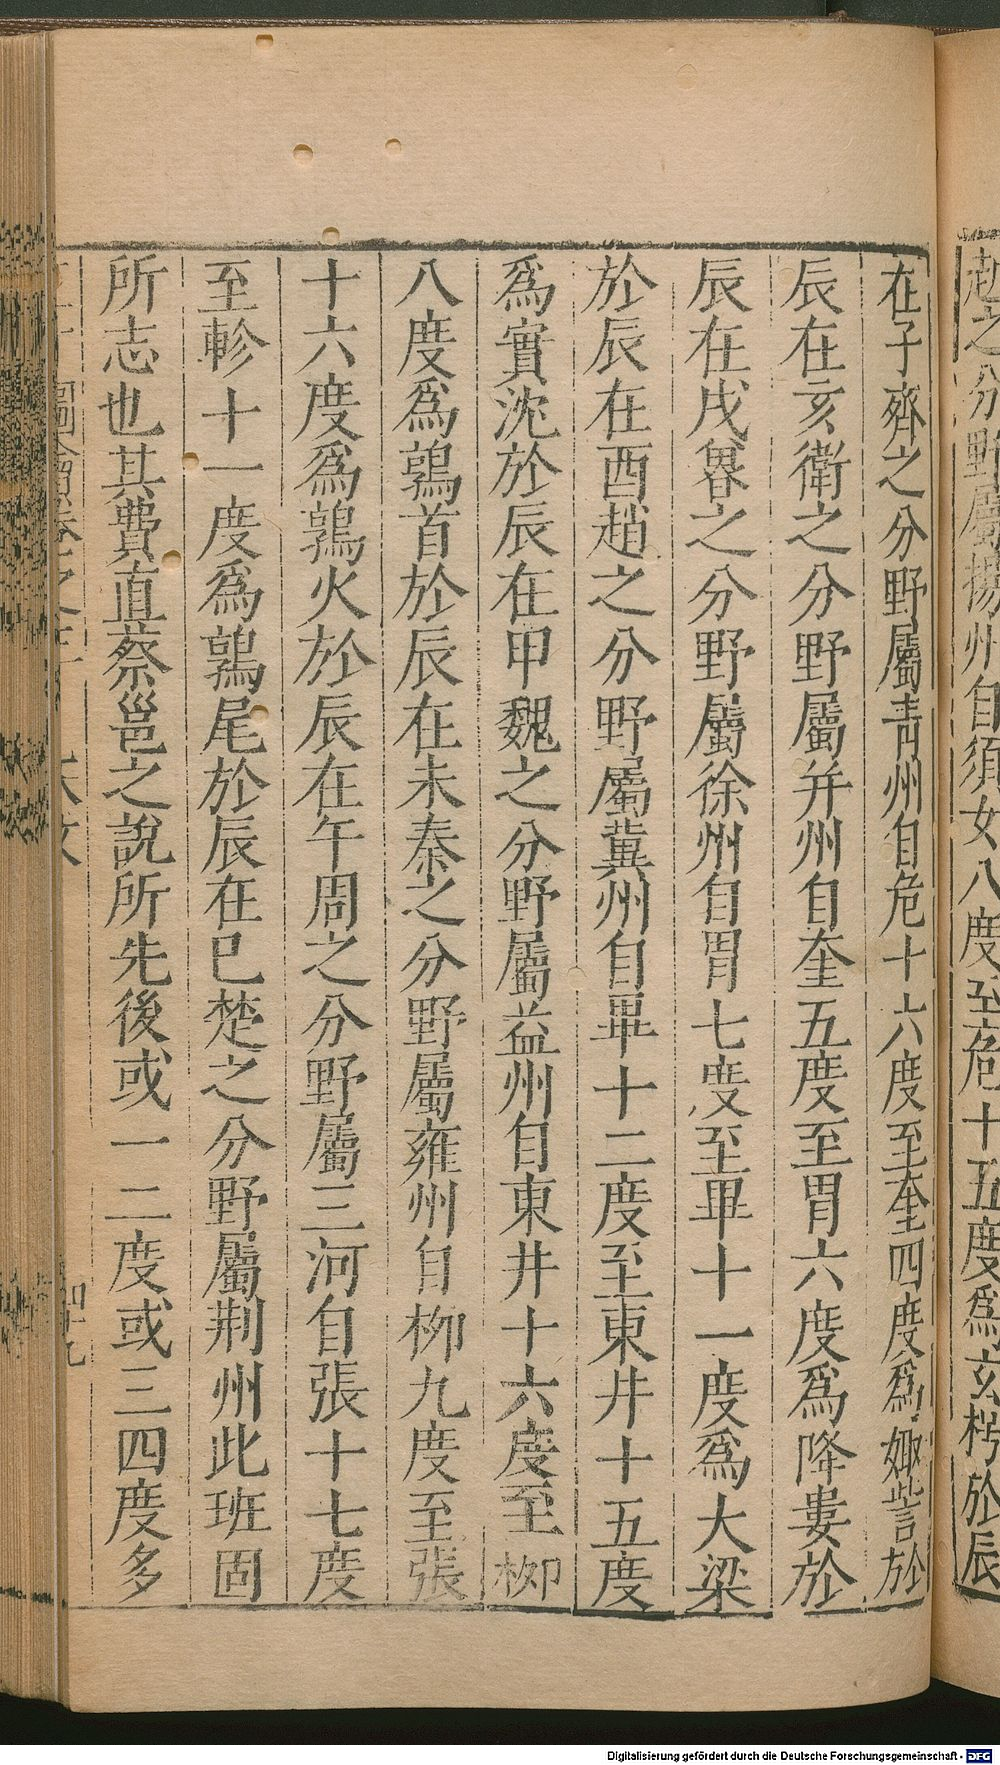 越之分野屬揚州自須女八度至危十五度爲玄枵於辰
在子齊之分野屬青州自危十六度至奎四度爲娵訾於
辰在亥衛之分野屬并州自奎五度至胃六度爲降婁於
辰在戌魯之分野屬徐州自胃七度至畢十一度爲大梁
於辰在酉趙之分野屬冀州自畢十二度至東井十五度
爲實沈於辰在甲魏之分野屬益州自東井十六度至柳
八度爲鶉首於辰在未秦之分野屬雍州自柳九度至張
十六度爲鶉火於辰在午周之分野屬三河自張十七度
至軫十一度爲鶉尾於辰在巳楚之分野屬荆州此班固
所志也其費直蔡邕之說所先後或一二度或三四度多
Digitalisierung gefördert durch die Deutsche Forschungsgemeinschaft - DFG